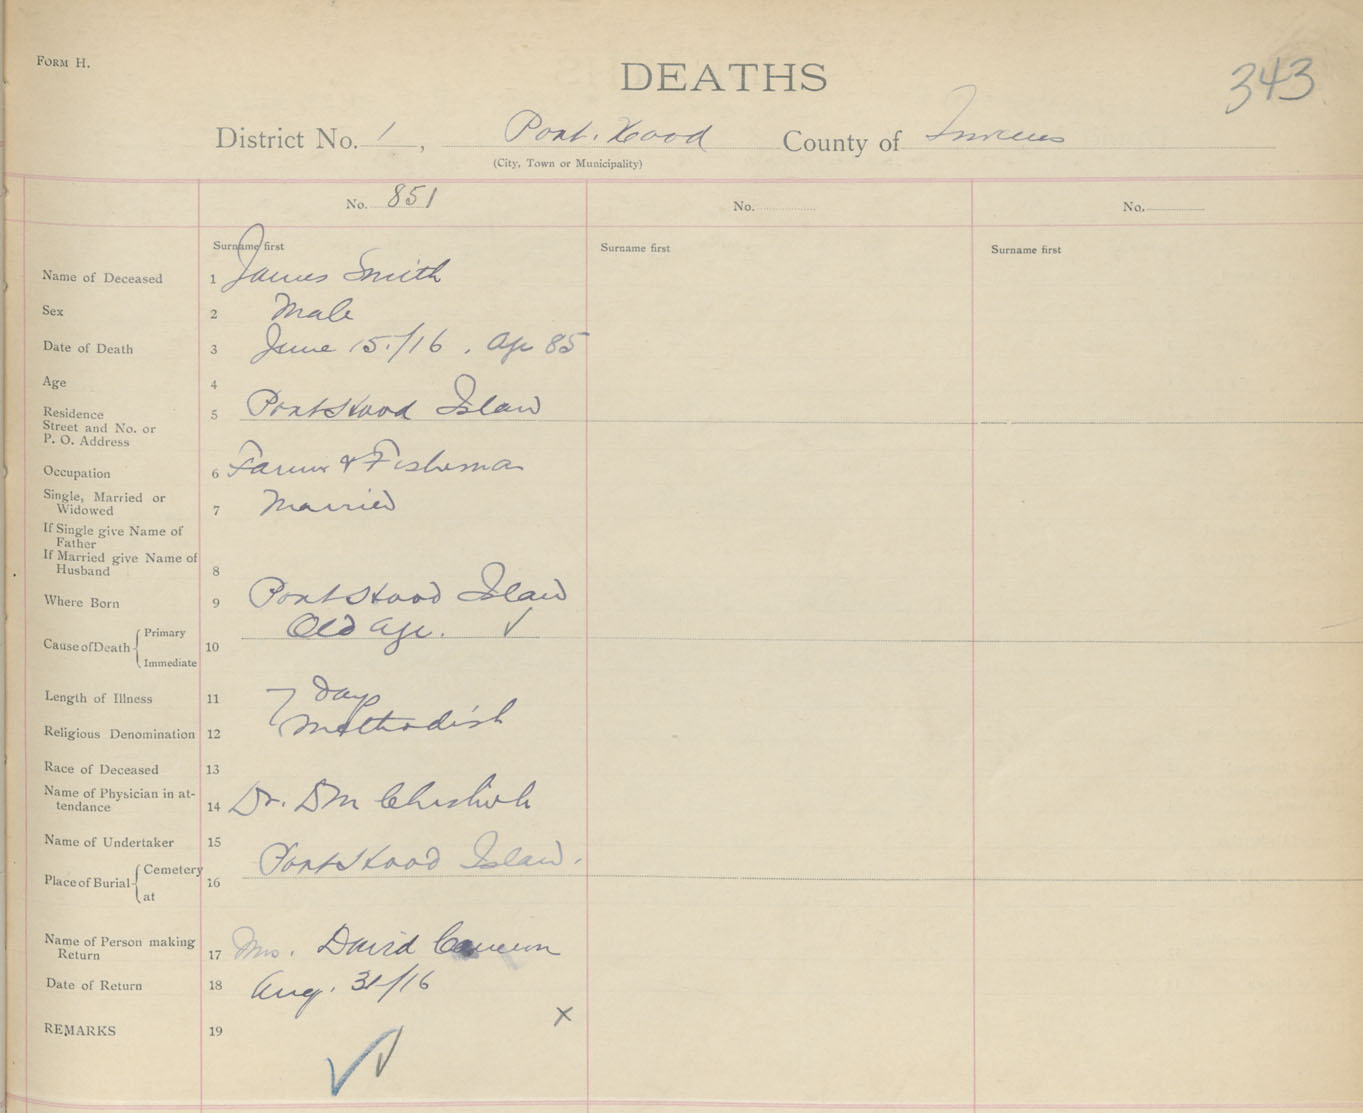 FORM H.
DEATHS
343
District No. 1, Port Hood County of Inverness
(City, Town or Municipality)
No. 851 No. No.
Surname first Surname first Surname first
Name of Deceased 1 James Smith
Sex 2 Male
Date of Death 3 June 15/16. Age 85
Age 4
Residence 5 Port Hood Island
Street and No. or
P. O. Address
Occupation 6 Farmer & Fisherman
Single, Married or
Widowed 7 Married
If Single give Name of
Father
If Married give Name of
Husband 8
Where Born 9 Port Hood Island
Cause of Death Primary Old age.
Immediate 10
Length of Illness 11 7 Days
Religious Denomination 12 Methodist
Race of Deceased 13
Name of Physician in at-
tendance 14 Dr. D M Chisholm
Name of Undertaker 15
Place of Burial Cemetery 16 Port Hood Island.
at
Name of Person making
Return 17 Mrs. David Cameron
Date of Return 18 Aug. 31/16
REMARKS 19